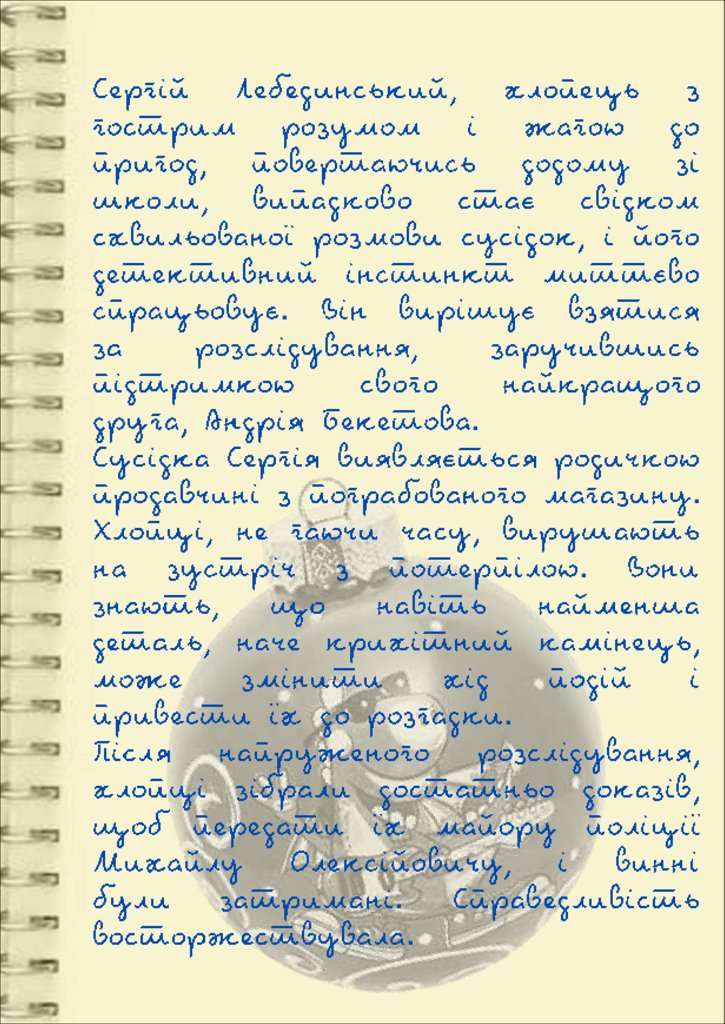 Сергій Лебединський, хлопець з
гострим розумом і жагою до
пригод, повертаючись додому зі
школи, випадково стає свідком
схвильованої розмови сусідок, і його
детективний інстинкт миттєво
спрацьовує. Він вирішує взятися
за розслідування, заручившись
підтримкою свого найкращого
друга, Андрія Бекетова.
Сусідка Сергія виявляється родичкою
продавчині з пограбованого магазину.
Хлопці, не гаючи часу, вирушають
на зустріч з потерпілою. Вони
знають, що навіть найменша
деталь, наче крихітний камінець,
може змінити хід подій і
привести їх до розгадки.
Після напруженого розслідування,
хлопці зібрали достатньо доказів,
щоб передати їх майору поліції
Михайлу Олексійовичу, і винні
були затримані. Справедливість
восторжествувала.